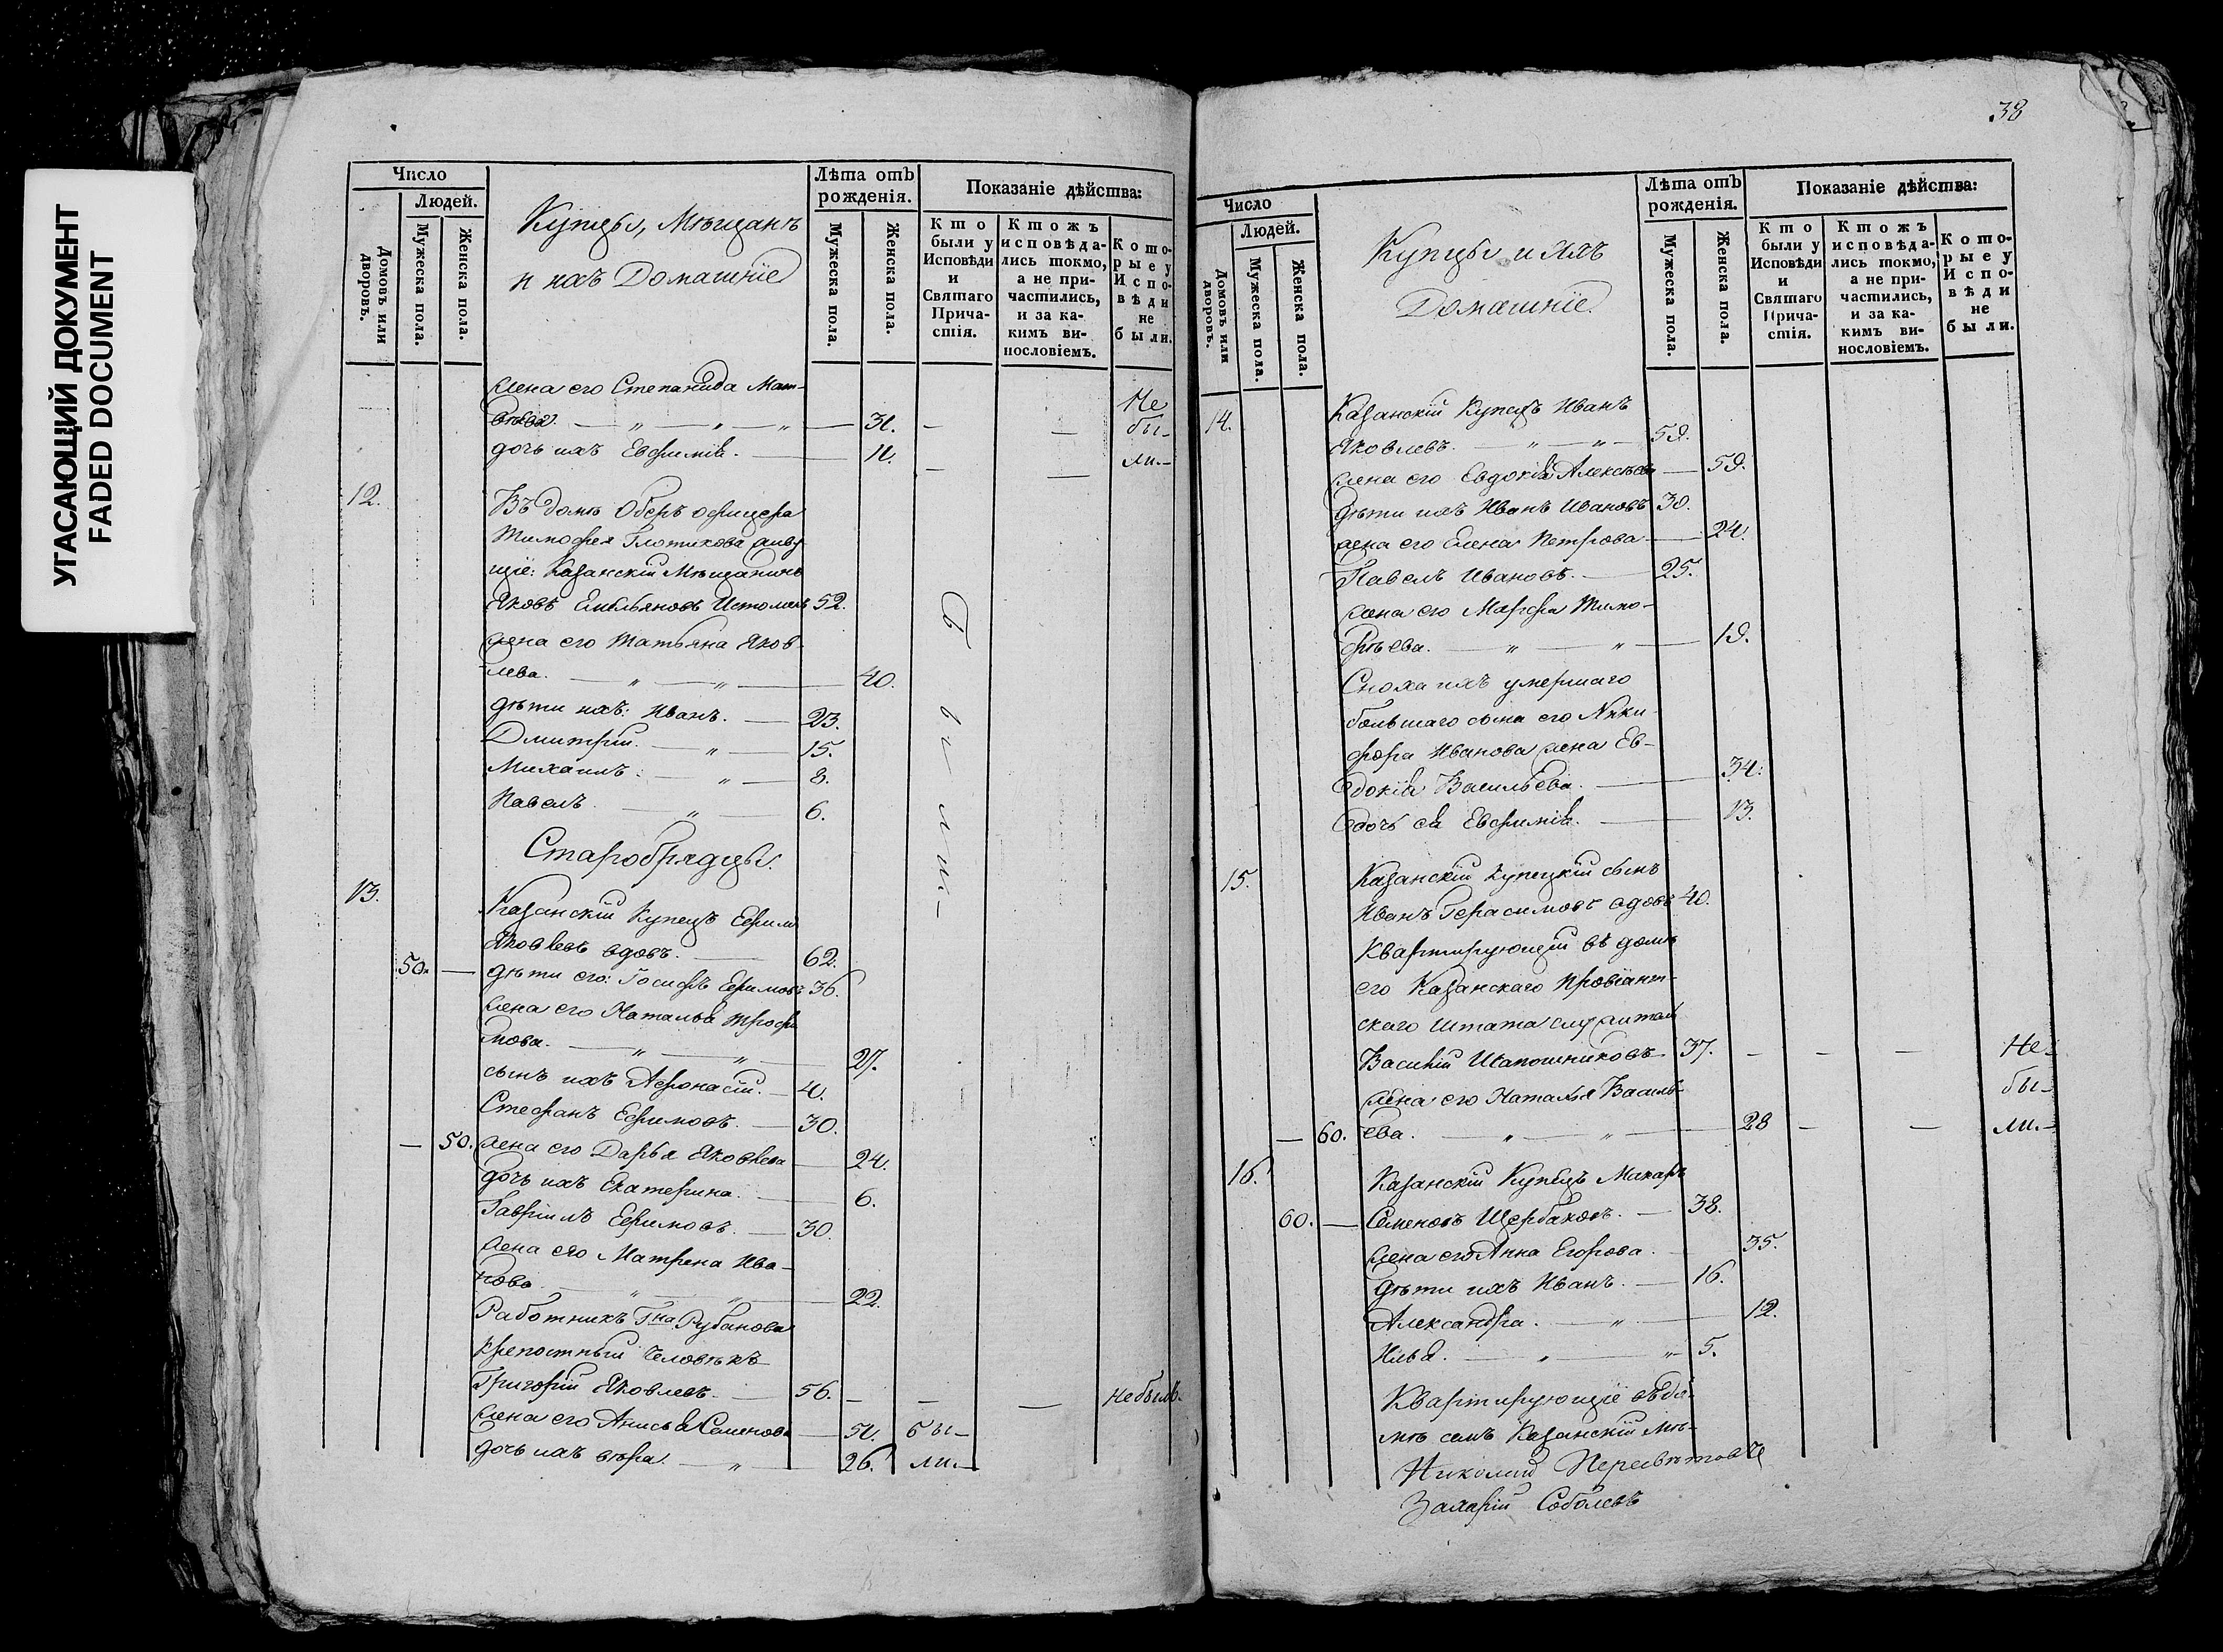 УГАСАЮЩИЙ ДОКУМЕНТ
FADED DOCUMENT
Число
Людей.
Домовъ или дворовъ.
Мужеска пола.
Женска пола.
Купцы, Мѣщанъ
и ихъ Домашніе
Лѣта отъ рожденія.
Мужеска пола.
Женска пола.
Показаніе дѣйства:
Кто были у Исповѣди и Святаго Причастія.
Ктожъ исповѣдались токмо, а не причастились, и за какимъ винословіемъ.
Которые у Исповѣди не были.
жена его Степанида Мат-
вѣева. — „ — „ — „ — 31. — — Не бы-
дочь ихъ Евфимія. — 11. — — ли.-
12. Въ домѣ Оберъ офицера
Тимофея Глотикова живу
щіе: Казанскій Мѣщанинъ
Яковъ Емельяновъ Истоминъ 52.
жена его Татьяна Яков-
лева. — „ — „ — 40.
дѣти ихъ: Иванъ. — 23.
Дмитрій. — „ — 15.
Михаилъ. — „ — 8.
Павелъ. — „ — 6.
Были.-
Старобрядцы.
13. Казанскій Купецъ Ефимъ
Яковлевъ вдовъ. — 62.
50. — дѣти его: Іосифъ Ефимовъ 36.
жена его Наталья Трофи
мова. — „ — „ — 27.
сынъ ихъ Афонасій. — 4.
Стефанъ Ефимовъ. — 30.
— 50. жена его Дарья Яковлева — 24.
дочь ихъ Екатерина. — 6.
Гавріилъ Ефимовъ. — 30.
жена его Матрена Ива-
нова — „ — „ — 22.
Работникъ Гна Рубанова
крепостный человѣкъ
Григорій Яковлевъ. — 56. — — — Небылъ.
жена его Анисья Семенова — 51. бы-
дочь ихъ вѣра. — „ — 26. ли.-
38
Число
Людей.
Домовъ или дворовъ.
Мужеска пола.
Женска пола.
Купцы и ихъ
Домашніе.
Лѣта отъ рожденія.
Мужеска пола.
Женска пола.
Показаніе дѣйства:
Кто были у Исповѣди и Святаго Причастія.
Ктожъ исповѣдались токмо, а не причастились, и за какимъ винословіемъ.
Которые у Исповѣди не были.
14. Казанскій Купецъ Иванъ
Яковлевъ. — „ — „ — 59.
жена его Евдокія Алексѣева — 59.
дѣти ихъ Иванъ Ивановъ 30.
жена его Елена Петрова — 24.
Павелъ Ивановъ. — 25.
жена его Марфа Тимо-
фѣева. — „ — „ — 19.
Сноха ихъ умершаго
большаго сына его Ники-
фора Иванова жена Ев-
докія Васильева. — 34.
дочь ея Евфимія. — 13.
15. Казанскій купецкій сынъ
Иванъ Герасимовъ вдовъ 40.
Квартирующій въ домѣ
его Казанскаго Провіант-
скаго штата служитель
Василій Шапошниковъ 37. — — — Не-
жена его Наталья Василь- бы-
— 60. ева. — „ — „ — 28 — — ли.-
16. Казанскій Купецъ Макаръ
60. — Семеновъ Щербаковъ. — 38.
жена его Анна Егорова. — 35.
дѣти ихъ Иванъ. — 16.
Александра. — „ — 12.
Илья. — „ — „ 5.
Квартирующіе въ до-
мѣ семъ Казанскій мѣ-
Николай Пересвѣтовъ
Захарій Соболевъ